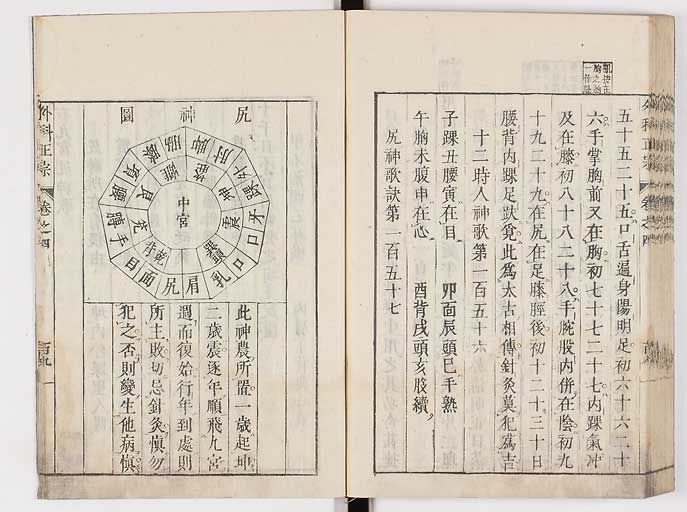 五十五二十五口舌遍身陽明足初六十六二十
六手掌胸前又在胸初七十七二十七內踝氣冲
及在膝初八十八二十八手腕股內併在陰初九
十九二十九在尻在足膝脛後初十二十三十日
腰背內踝足趺覓此為太古相傳針灸莫犯為吉
十二時人神歌第一百五十六
子踝丑腰寅在目 卯面辰頭巳手熟
午胸未腹申在心 酉背戌頭亥股續
尻神歌訣第一百五十七
尻神圖
中宮
坤
震
乾
兌
艮
離
外踝
牙
口
口
乳
肩
尻
面
目
背
手
膊
腰
項
此神農所置一歲起坤
二歲震逐年順飛九宮
週而復始行年到處則
所主敗切忌針灸慎勿
犯之否則變生他病慎
外科正宗 卷之四